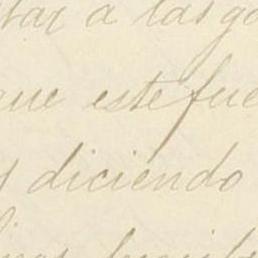 tar a las go
que este fue
s diciendo